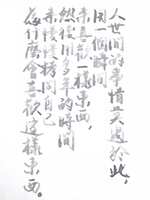 人世間的事情莫過於此，
用一個瞬間
來喜歡一樣東西，
然後用多年的時間
來慢慢拷問自己
為什麼會喜歡這樣東西。